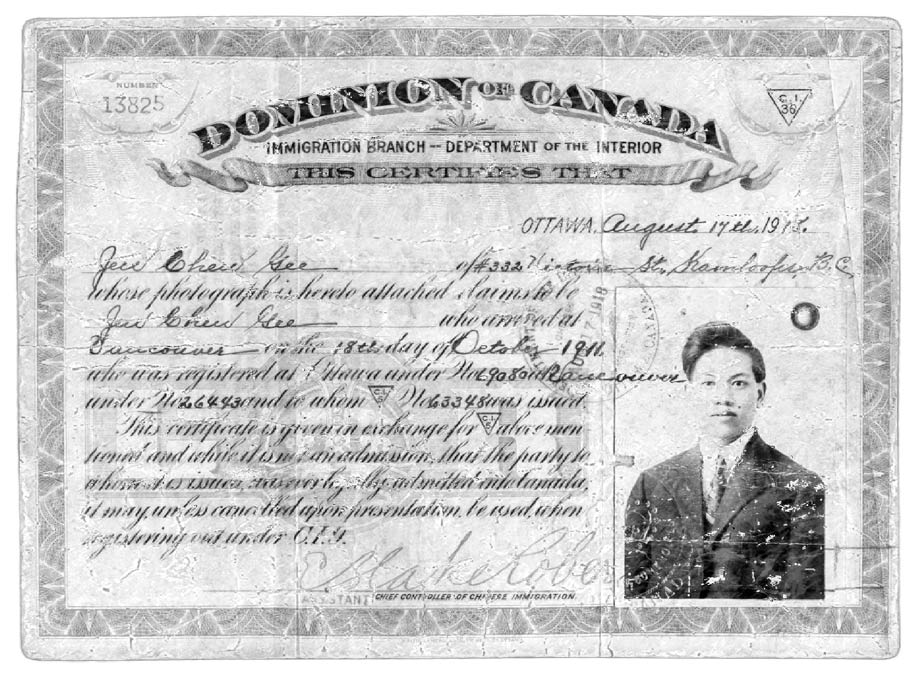 NUMBER
13825
C.I.
36
DOMINION OF CANADA
IMMIGRATION BRANCH — DEPARTMENT OF THE INTERIOR
THIS CERTIFIES THAT
OTTAWA, August 17th, 1918.
Jeu Chew Gee of #332 Victoria St., Kamloops, B.C.
whose photograph is hereto attached claims to be
Jeu Chew Gee who arrived at
Vancouver on the 18th day of October 1911.
who was registered at Ottawa under No. 79080 Vancouver
under No 26443 and to whom C.I. 5 No 63348 was issued.
This certificate is given in exchange for C.I. 5 above men-
tioned and while it is not an admission, that the party to
whom it is issued, was ever legally admitted into Canada,
it may, unless cancelled upon presentation, be used, when
registering out under C.I.9.
ASSISTANT CHIEF CONTROLLER OF CHINESE IMMIGRATION.